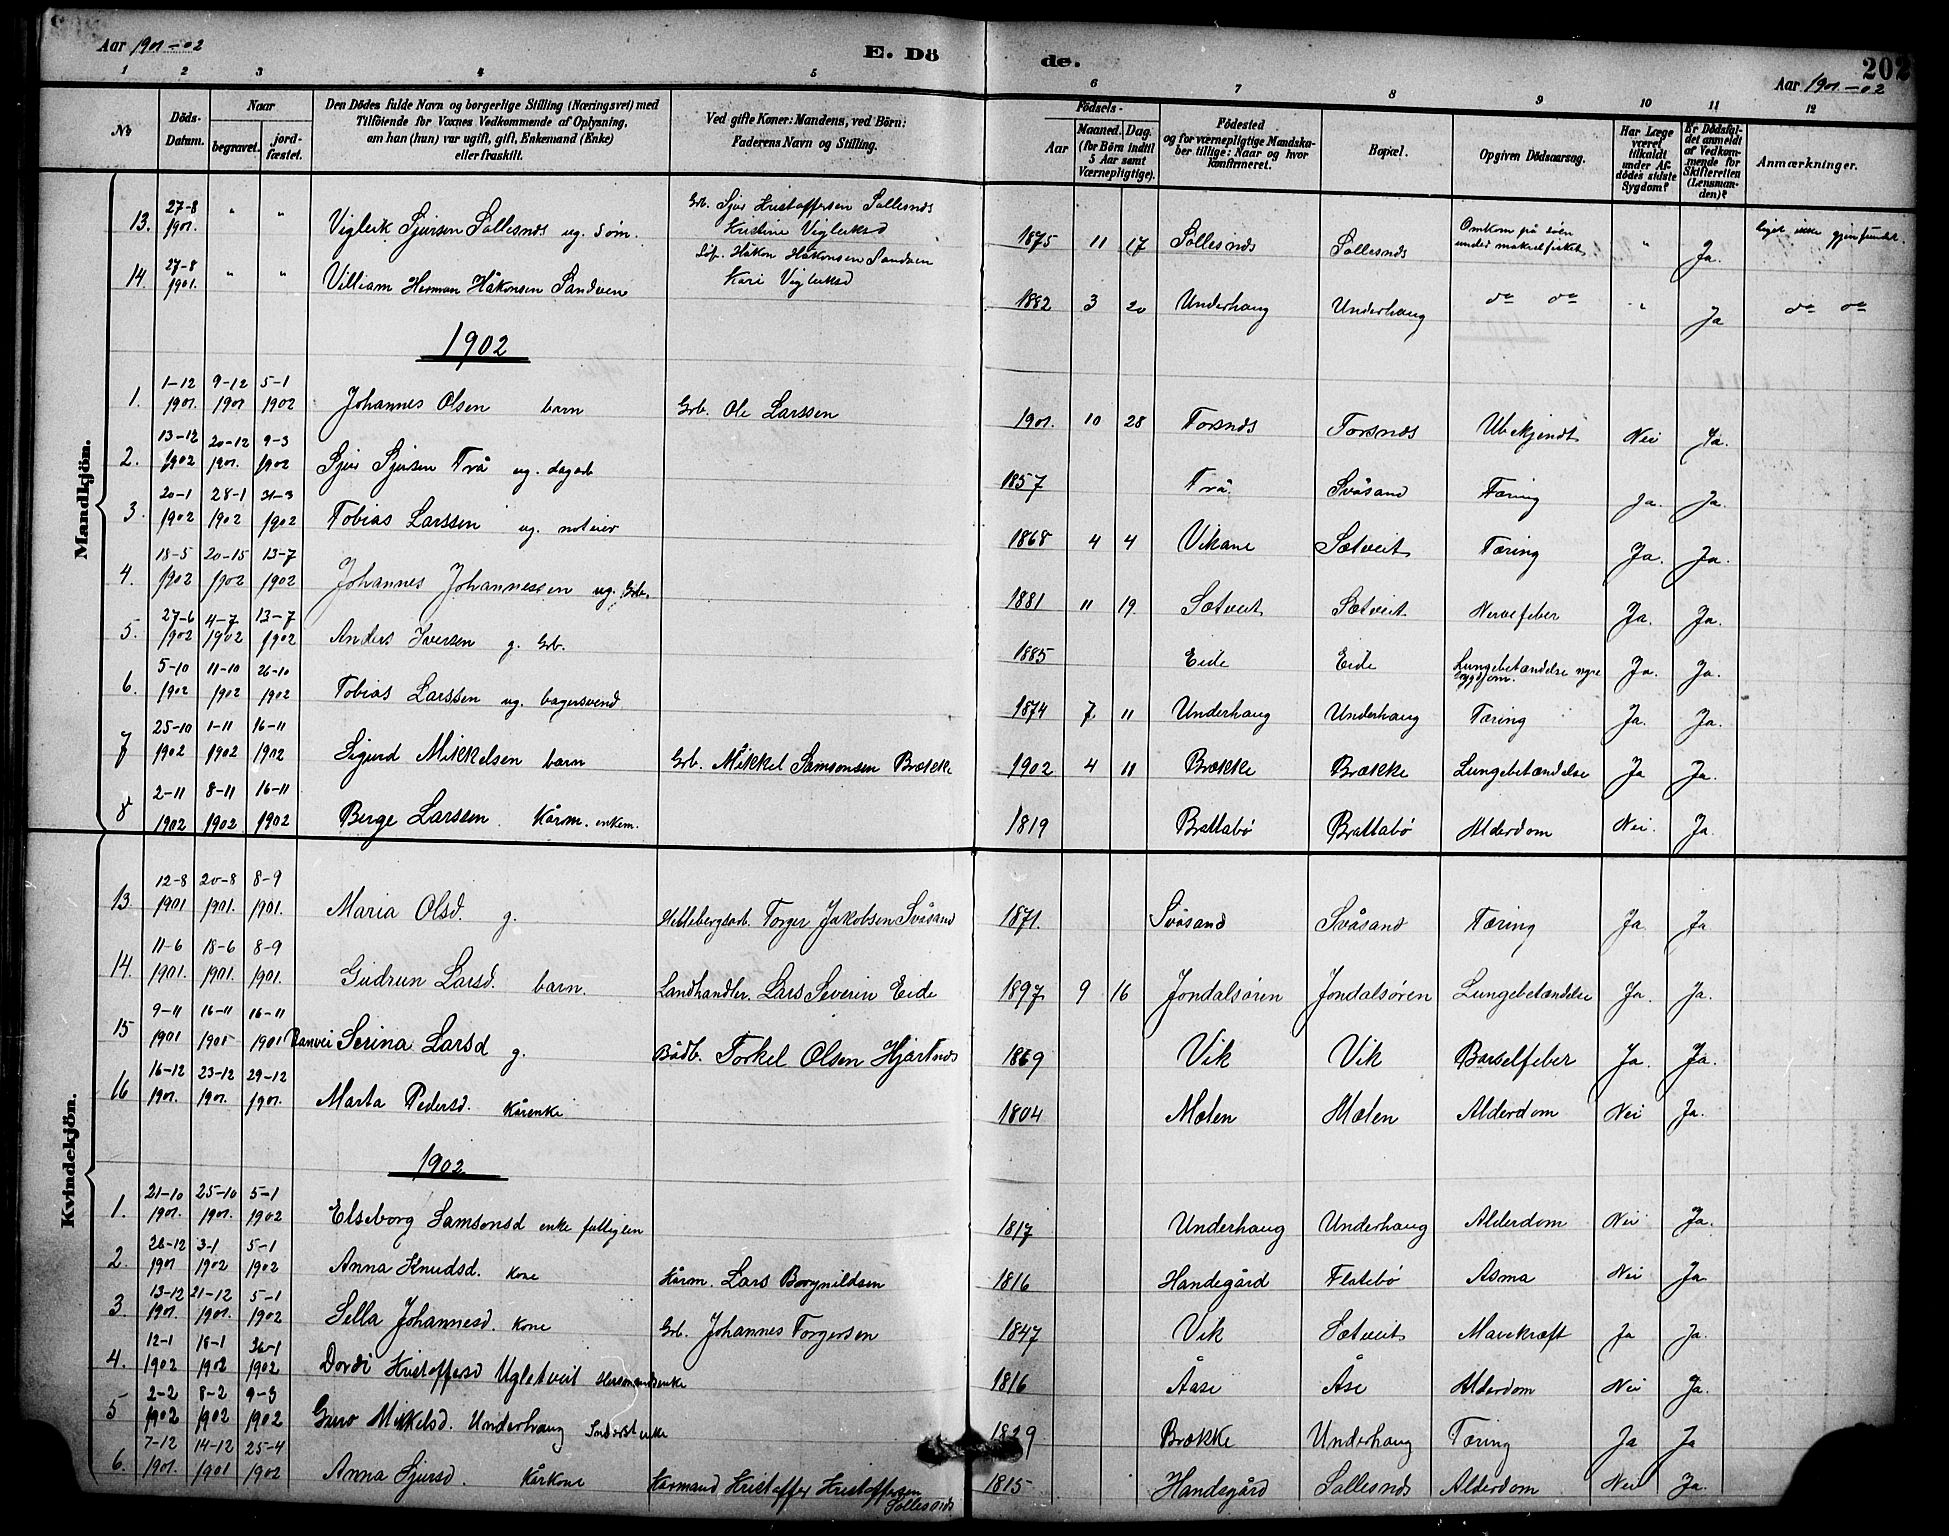 Aar 1901-02
E. Dö
de.
202
Aar 1901-02
1 2 3 4 5 6 7 8 9 10 11 12
No
Döds-Datum.
Naar
begravet.
jord-fæstet.
Den Dödes fulde Navn og borgerlige Stilling (Næringsvei) med
Tilföiende for Voxnes Vedkommende af Oplysning,
om han (hun) var ugift, gift, Enkemand (Enke)
eller fraskilt.
Ved gifte Koner: Mandens, ved Börn:
Faderens Navn og Stilling.
Födsels-
Aar
Maaned. Dag.
(for Börn indtil
5 Aar samt
Værnepligtige).
Födested
og for værnepligtige Mandska-
ber tillige: Naar og hvor
konfirmeret.
Bopæl.
Opgiven Dödsaarsag.
Har Læge
været
tilkaldt
under Af-
dödes sidste
Sygdom?
Er Dödsfal-
det anmeldt
af Vedkom-
mende for
Skifteretten
(Lensman-
den)?
Anmærkninger.
Mandkjön.
13. 27-8 1901. " " Viglerk Sjursen Sollesnes ug. søm. Grb. Sjur Kristoffersen Sollesnes Kristine Viglerksd 1875 11 17 Sollesnes Sollesnes Omkom på søen under makrelfisket " Ja. liget ikke gjenfundet.
14. 27-8 1901. " " Villiam Herman Håkonsen Sandven Håkon Håkonsen Sandven Kari Viglerksd 1882 3 20 Underhaug Underhaug do do " Ja do do
1902
1. 1-12 1901. 9-12 1901 5-1 1902 Johannes Olsen barn Grb. Ole Larssen 1901. 10 28 Torsnes Torsnes Ubekjendt Nei Ja.
2. 13-12 1902 20-12 1901. 9-3 1902 Sjur Sjursen Trå ug. dagarb 1857 Trå. Svåsand Tæring Ja. Ja.
3. 20-1 1902 28-1 1902 31-3 1902 Tobias Larssen ug. noteier 1868 4 4 Vikane Sætveit Tæring Ja. Ja.
4. 18-5 1902 20-15 1902 13-7 1902 Johannes Johannessen ug. Grb. 1881 11 19. Sætveit Sætveit Nervefeber Ja. Ja.
5. 27-6 1902 4-7 1902 13-7 1902 Anders Iversen g. Grb. 1885 Eide Eide Lungebetændelse nyre sygdom. Ja. Ja.
6. 5-10 1902 11-10 1902 26-10 1902 Tobias Larssen ug. bagersvend 1874 7. 11 Underhaug Underhaug Tæring Ja. Ja.
7 25-10 1902 1-11 1902 16-11 1902 Sigurd Mikkelsen barn Grb. Mikkel Samsonsen Brække 1902 4 11 Brække Brække Lungebetændelse Ja Ja.
8 2-11 1902 8-11 1902 16-11 1902 Berge Larssen. Kårm. enkem. 1819 Brattabø Brattabø Alderdom Nei. Ja
Kvindekjön.
13. 12-8 1901 20-8 1901. 8-9 1901. Maria Olsd. g. Hellebergsarb. Torger Jakobsen Svåsand 1871. Svåsand Svåsand Tæring Ja Ja
14. 11-6 1901. 18-6 1901. 8-9 1901. Gudrun Larsd. barn. Landhandler. Lars Severin Eide 1897 9 16 Jondalsøren Jondalsøren Lungebetændelse Ja. Ja.
15 9-11 1901 16-11 1901 16-11 1901 Ranvei Serina Larsd g. Bådb. Torkel Olsen Hjartnes 1869 Vik Vik Barselfeber Ja. Ja.
16 16-12 1901. 23-12 1901. 29-12 1901. Marta Pedersd. Kårenke 1804 Mælen Mælen Alderdom Nei Ja.
1902
1. 21-10 1901. 25-10 1901. 5-1 1902 Elseborg Samsonsd enke fattiglem 1817 Underhaug Underhaug Alderdom Nei Ja.
2. 28-12 1901 3-1 1902 5-1 1902 Anna Knudsd. kone Kårm. Lars Borgnildsen 1816 Handegård Flatebø Asma Nei Ja.
3. 13-12 1901. 21-12 1901. 5-1 1902 Sella Johannesd. kone Grb. Johannes Torgersen 1847 Vik Sætveit Mavekræft Ja Ja.
4. 12-1 1902 18-1 1902 26-1 1902 Dordi Kristoffersd Ugletveit Husmandsenke 1816 Åase Åse Alderdom Nei Ja.
5 2-2 1902 8-2 1902 9-3 1902 Guro Mikkelsd. Underhaug enke 1829 Brække Underhaug Tæring Ja Ja
6. 7-12 1901. 14-12 1901 25-4 1902 Anna Sjursd. Kårkone Kårmand Kristoffer Kristoffersen Sollesnes 1815 Handegård Sollesnes Alderdom Nei Ja.